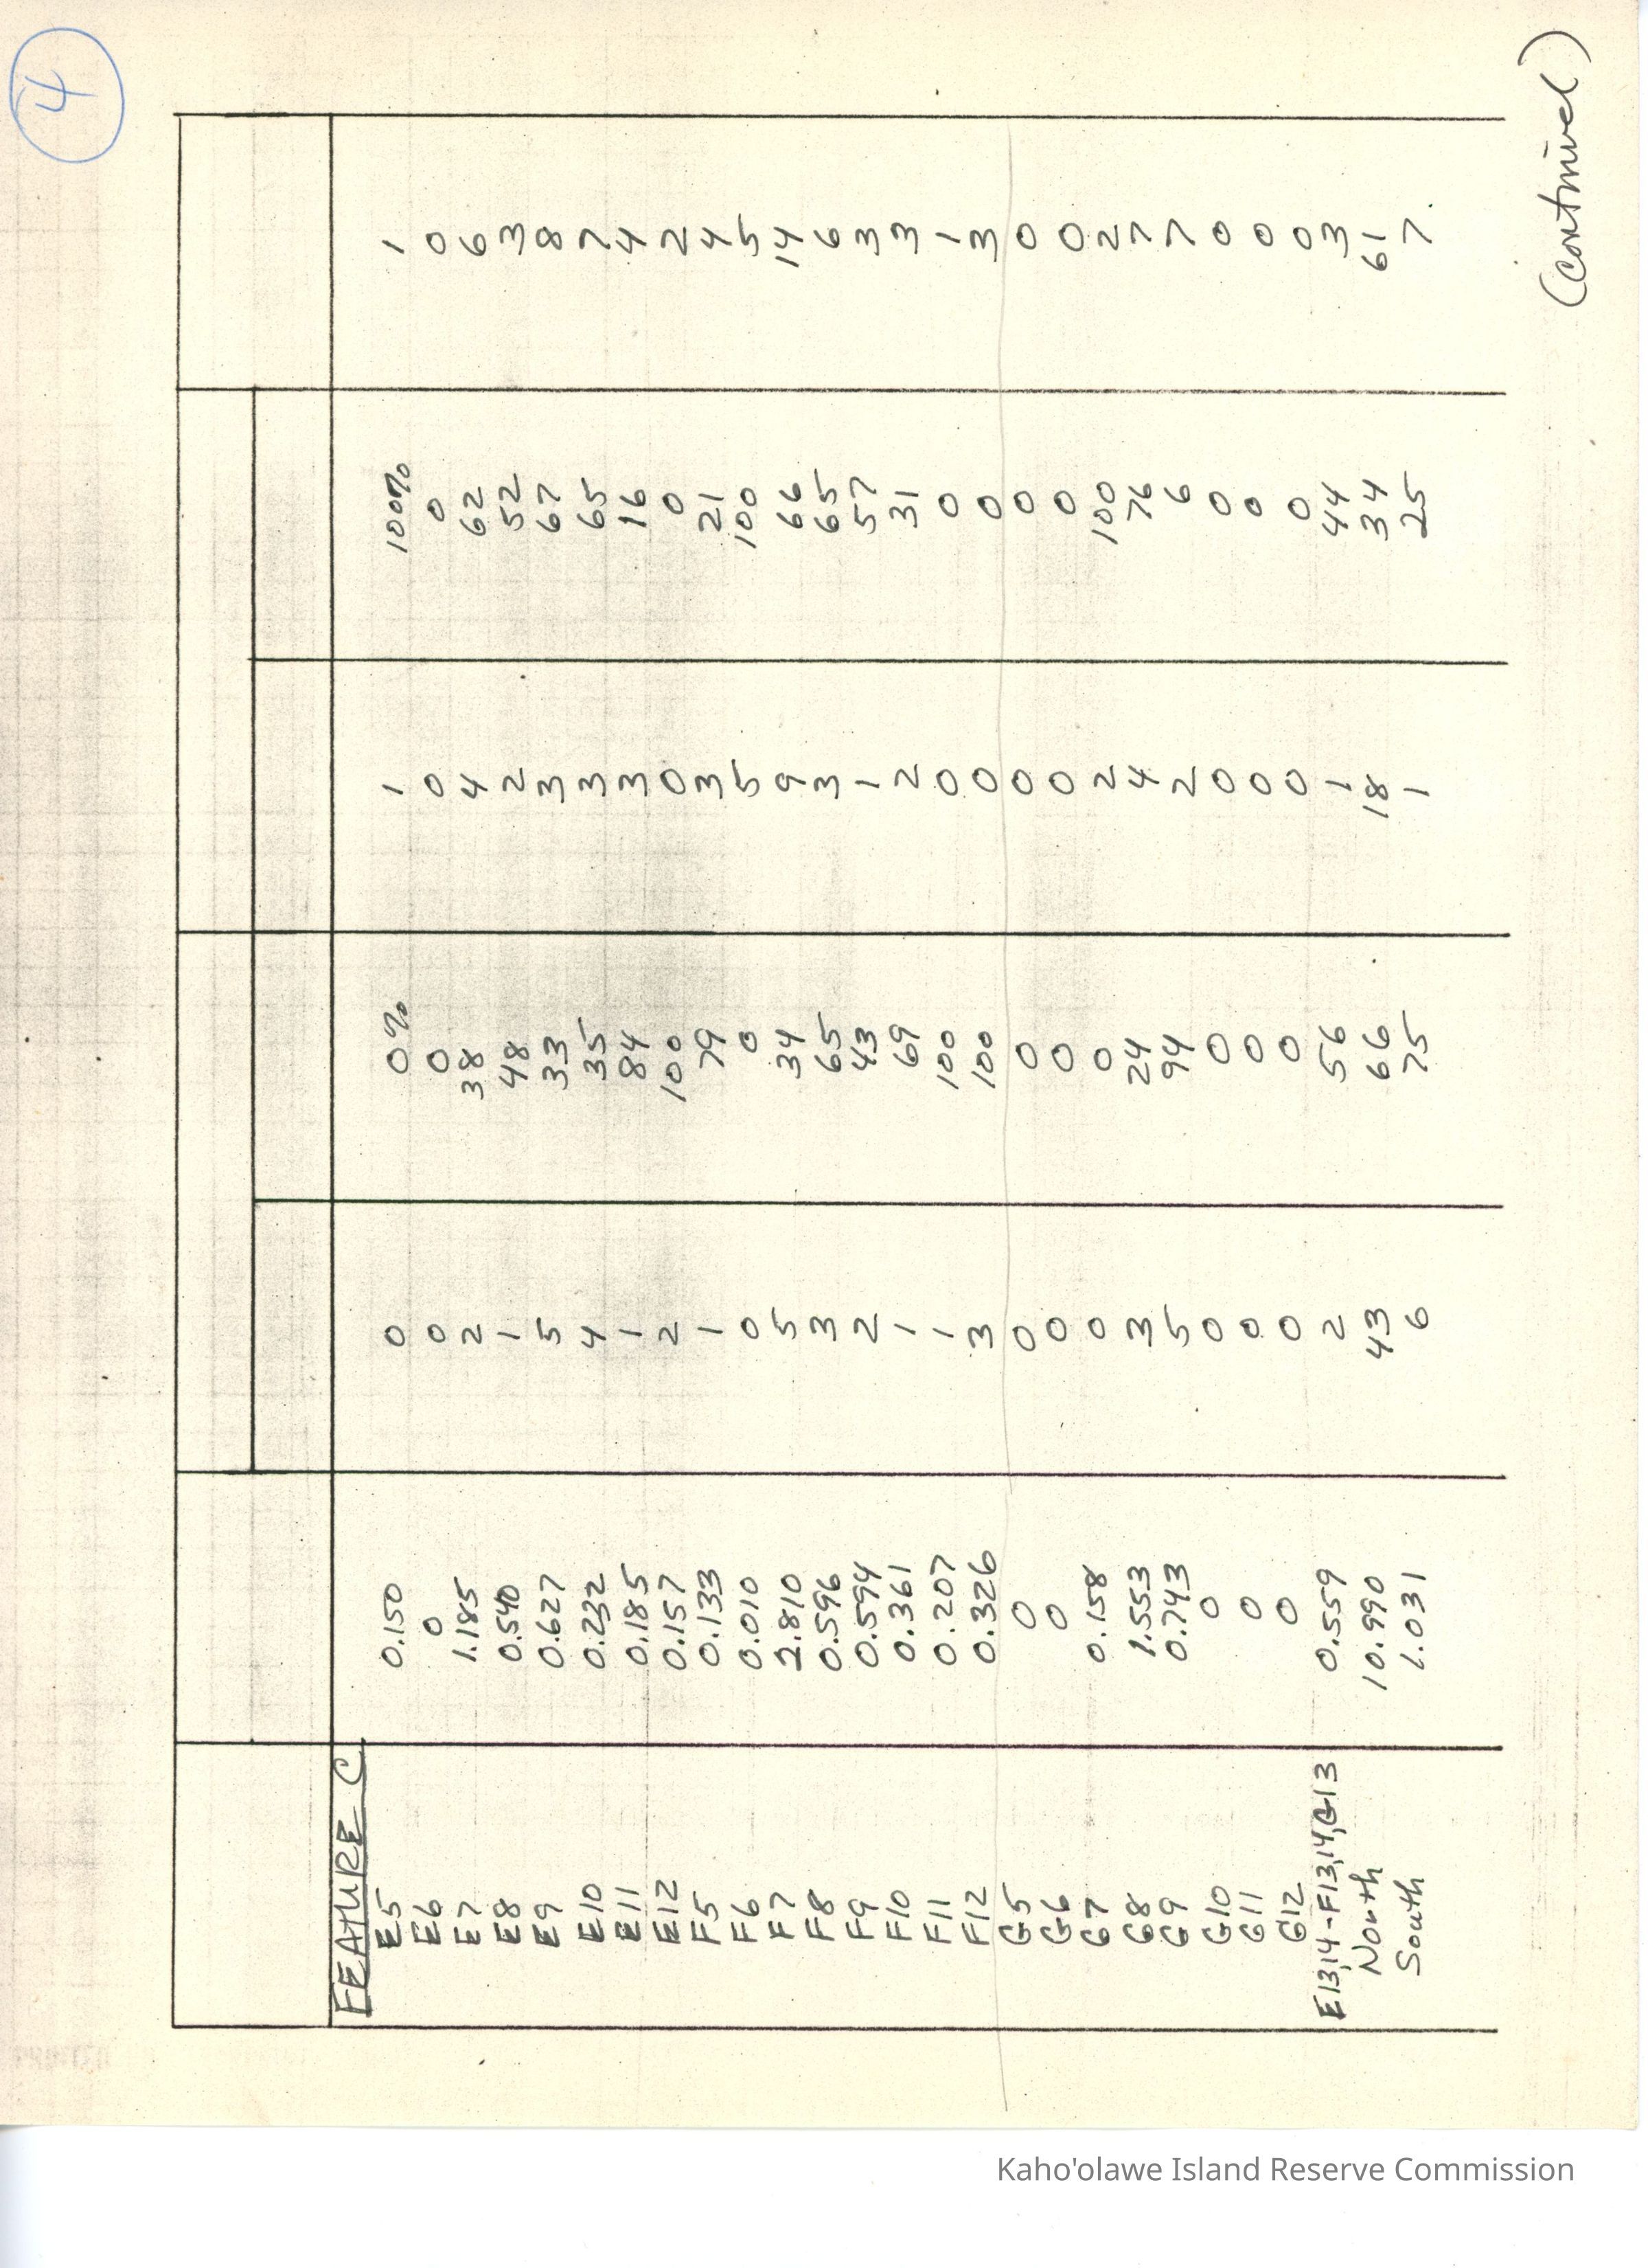 4
FEATURE C
E5 0.150 0 0% 1 100% 1
E6 0 0 0 0 0 0
E7 1.185 2 38 4 62 6
E8 0.540 1 48 2 52 3
E9 0.627 5 33 3 67 8
E10 0.232 4 35 3 65 7
E11 0.185 1 84 3 16 4
E12 0.157 2 100 0 0 2
F5 0.133 1 79 3 21 4
F6 0.010 0 0 5 100 5
F7 2.810 5 34 9 66 14
F8 0.596 3 65 3 65 6
F9 0.594 2 43 1 57 3
F10 0.361 1 69 2 31 3
F11 0.207 1 100 0 0 1
F12 0.326 3 100 0 0 3
G5 0 0 0 0 0 0
G6 0 0 0 0 0 0
G7 0.158 0 0 2 100 2
G8 1.553 3 24 4 76 7
G9 0.743 5 94 2 6 7
G10 0 0 0 0 0 0
G11 0 0 0 0 0 0
G12 0 0 0 0 0 0
E13,14-F13,14,G13 0.559 2 56 1 44 3
North 10.990 43 66 18 34 61
South 1.031 6 75 1 25 7
(continued)
Kaho'olawe Island Reserve Commission